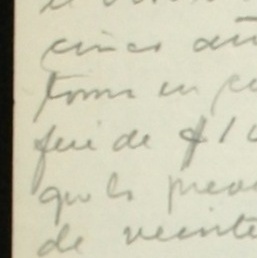 cinco añ
toma en c
fué de $1
que la prev
de veinte